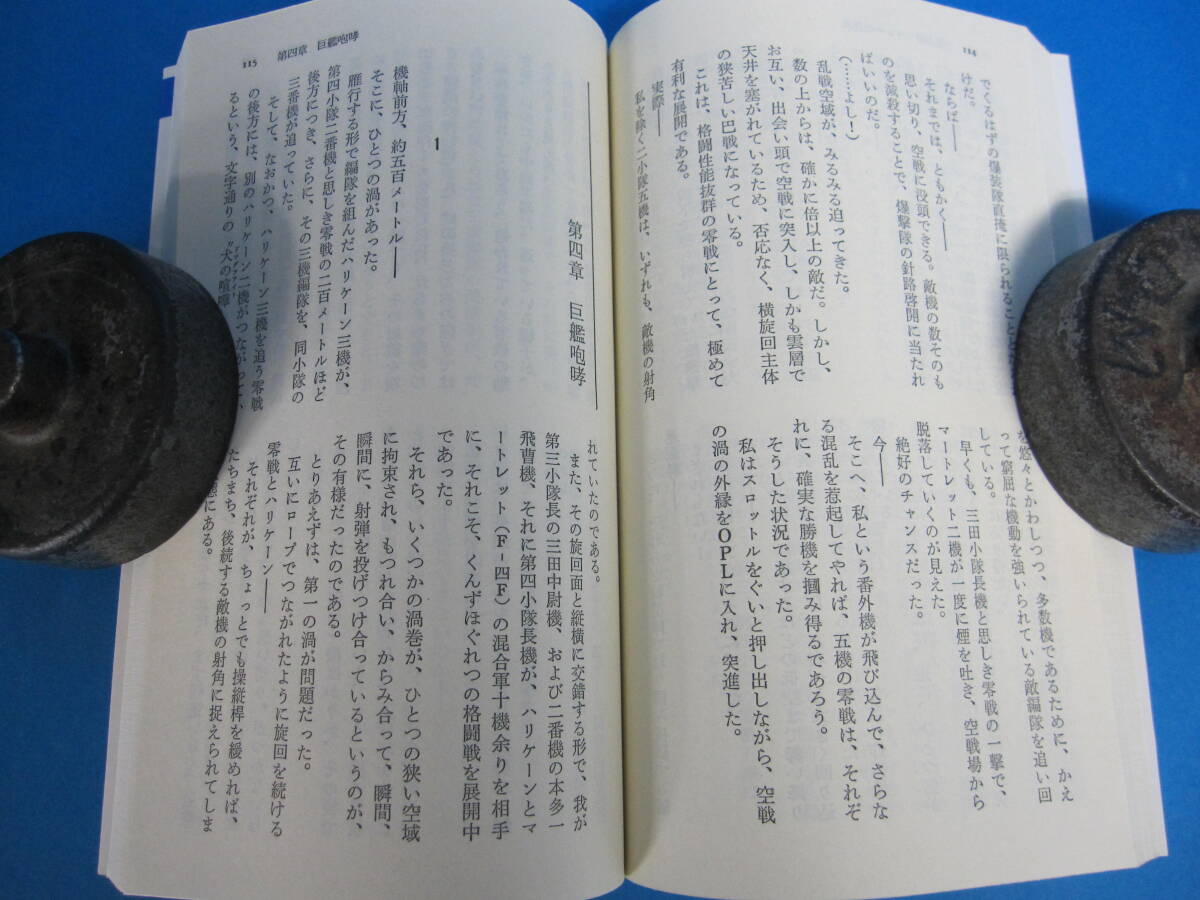 114
でくるはずの爆装隊直掩に限られること
けだ。
ならば――
それまでは、ともかく――
思い切り、空戦に没頭できる。敵機の数そのも
のを減殺することで、爆撃隊の針路啓開に当たれ
ばいいのだ。
(……よし!)
乱戦空域が、みるみる迫ってきた。
数の上からは、確かに倍以上の敵だ。しかし、
お互い、出会い頭で空戦に突入し、しかも雲層で
天井を塞がれているため、否応なく、横旋回主体
の狭苦しい巴戦になっている。
これは、格闘性能抜群の零戦にとって、極めて
有利な展開である。
実際――
私を除く二小隊五機は、いずれも、敵機の射角
を悠々とかわしつつ、多数機であるために、かえ
って窮屈な機動を強いられている敵編隊を追い回
している。
早くも、三田小隊長機と思しき零戦の一撃で、
マートレット二機が一度に煙を吐き、空戦場から
脱落していくのが見えた。
絶好のチャンスだった。
今――
そこへ、私という番外機が飛び込んで、さらな
る混乱を惹起してやれば、五機の零戦は、それぞ
れに、確実な勝機を摑み得るであろう。
そうした状況であった。
私はスロットルをぐいと押し出しながら、空戦
の渦の外縁をOPLに入れ、突進した。
115 第四章 巨艦咆哮
第四章 巨艦咆哮
1
機軸前方、約五百メートル――
そこに、ひとつの渦があった。
雁行する形で編隊を組んだハリケーン三機が、
第四小隊二番機と思しき零戦の二百メートルほど
後方につき、さらに、その三機編隊を、同小隊の
三番機が追っていた。
そして、なおかつ、ハリケーン三機を追う零戦
の後方には、別のハリケーン二機がつながって、
るという、文字通りの〝犬の喧嘩
れていたのである。
また、その旋回面と縦横に交錯する形で、我が
第三小隊長の三田中尉機、および二番機の本多一
飛曹機、それに第四小隊長機が、ハリケーンとマ
ートレット(F-四F)の混合軍十機余りを相手
に、それこそ、くんずほぐれつの格闘戦を展開中
であった。
それら、いくつかの渦巻が、ひとつの狭い空域
に拘束され、もつれ合い、からみ合って、瞬間、
瞬間に、射弾を投げつけ合っているというのが、
その有様だったのである。
とりあえずは、第一の渦が問題だった。
互いにロープでつながれたように旋回を続ける
零戦とハリケーン――
それぞれが、ちょっとでも操縦桿を緩めれば、
たちまち、後続する敵機の射角に捉えられてしま
にある。